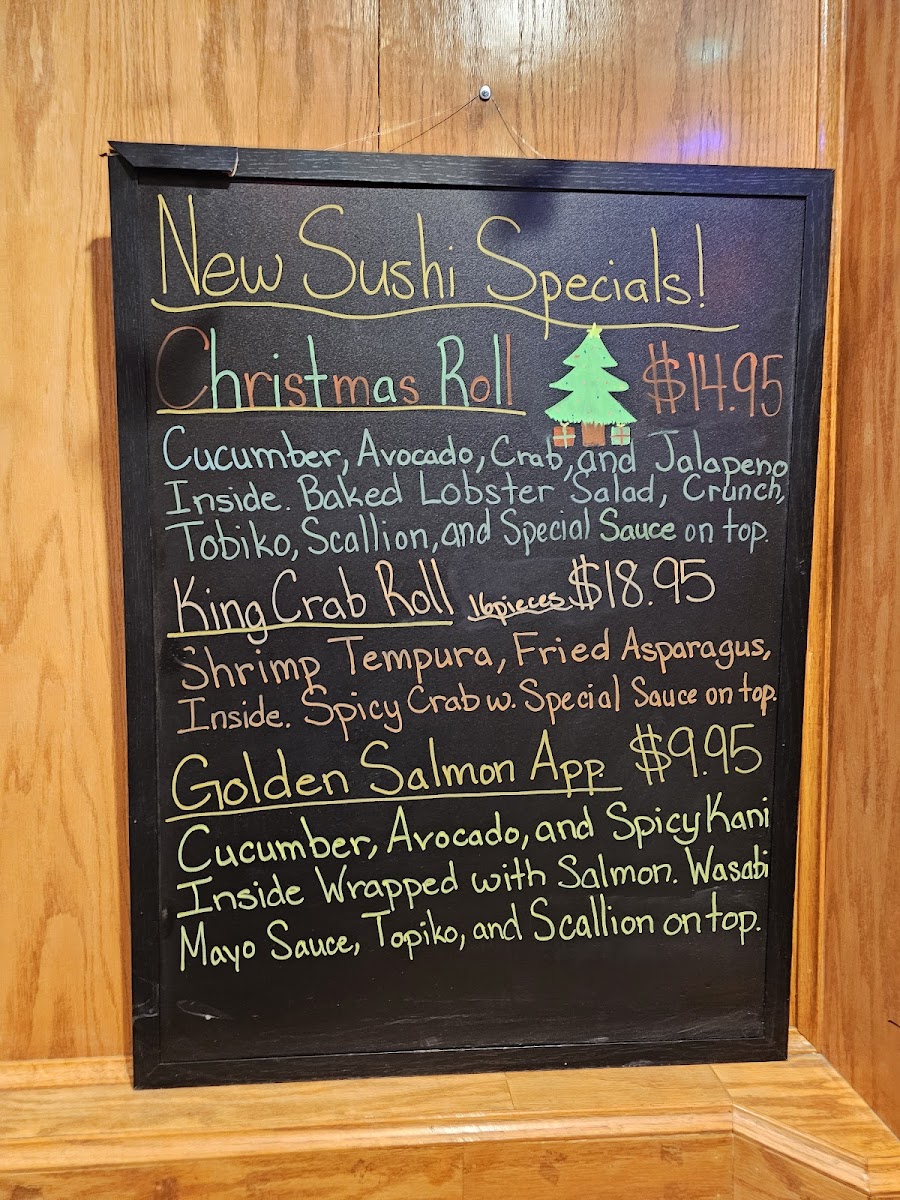 New Sushi Specials!
Christmas Roll $14.95
Cucumber, Avocado, Crab, and Jalapeno
Inside. Baked Lobster Salad, Crunch,
Tobiko, Scallion, and Special Sauce on top.
King Crab Roll 16pieces $18.95
Shrimp Tempura, Fried Asparagus,
Inside. Spicy Crab w. Special Sauce on top.
Golden Salmon App. $9.95
Cucumber, Avocado, and Spicy Kani
Inside Wrapped with Salmon. Wasabi
Mayo Sauce, Topiko, and Scallion on top.